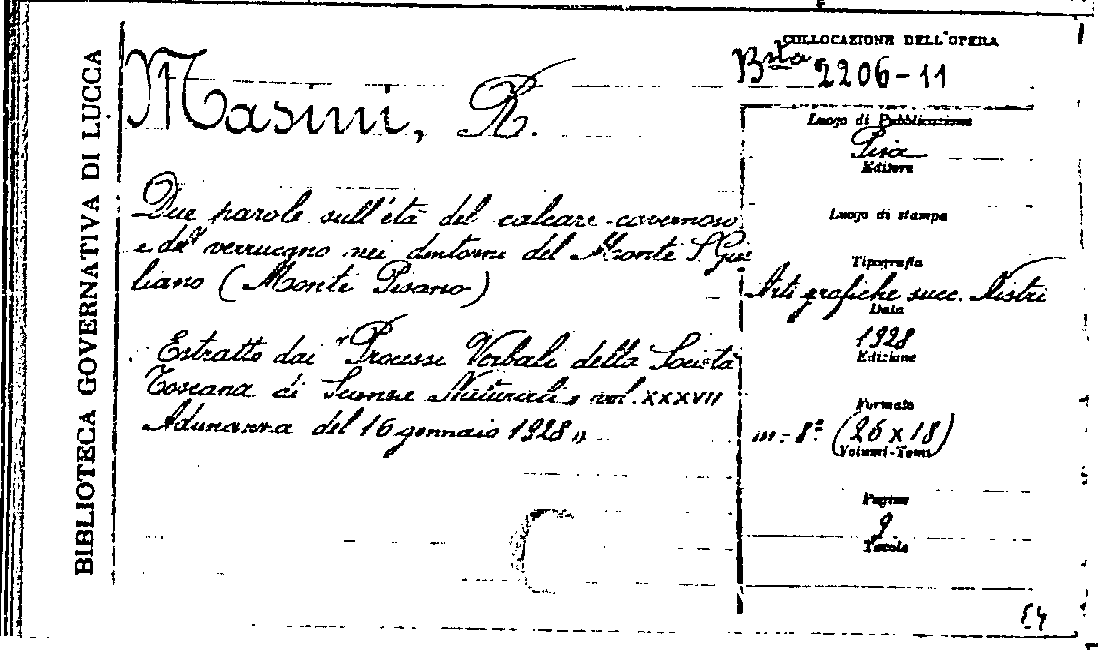 BIBLIOTECA GOVERNATIVA DI LUCCA
COLLOCAZIONE DELL'OPERA
Bsta 2206-11
Masini, R.
Due parole sull'età del calcare cavernoso
e del verrucano nei dintorni del Monte S. Giu
liano (Monti Pisano)
Estratto dai "Processi Verbali della Società
Toscana di Scienze Naturali, vol. XXXVII
Adunanza del 16 gennaio 1928"
Luogo di Pubblicazione
Pisa
Editore
Luogo di stampa
Tipografia
Arti grafiche succ. Nistri
Data
1928
Edizione
Formato
in-8º (26 x 18)
Volumi-Tomi
Pagine
9
Tavole